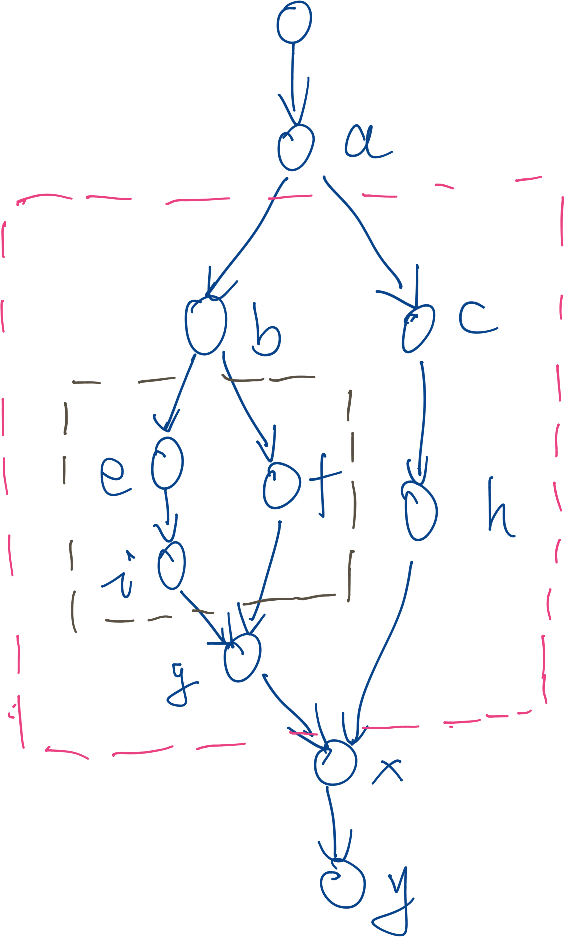 a
b
c
e
f
h
i
g
x
y